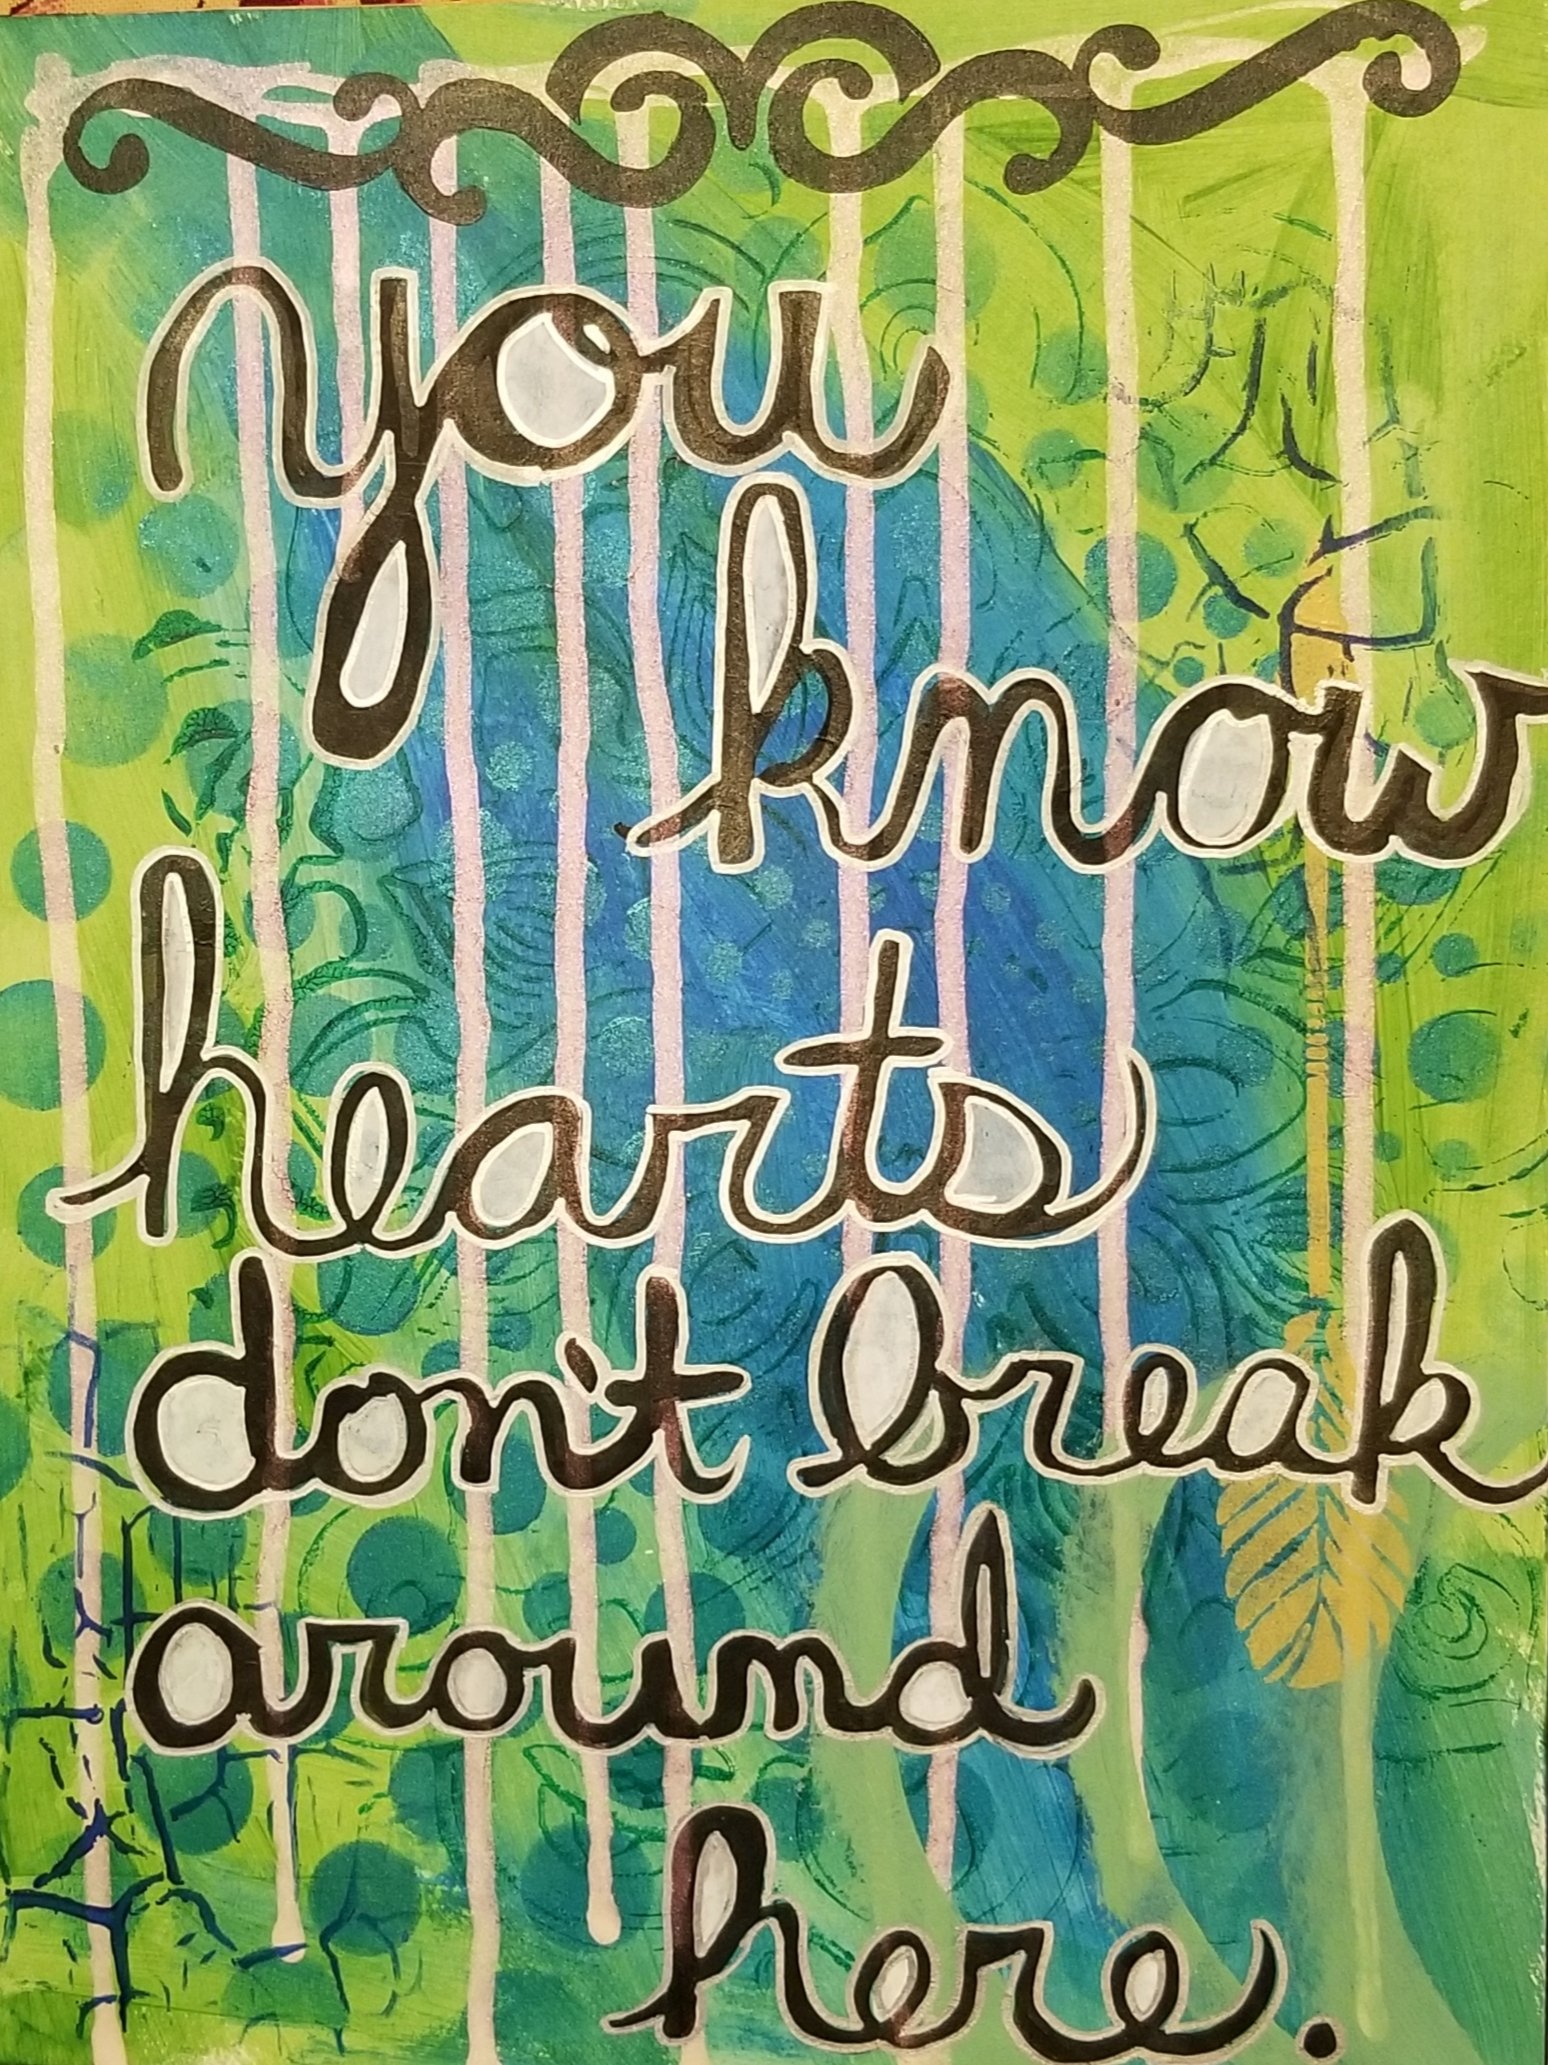 you
know
hearts
don't break
around
here.